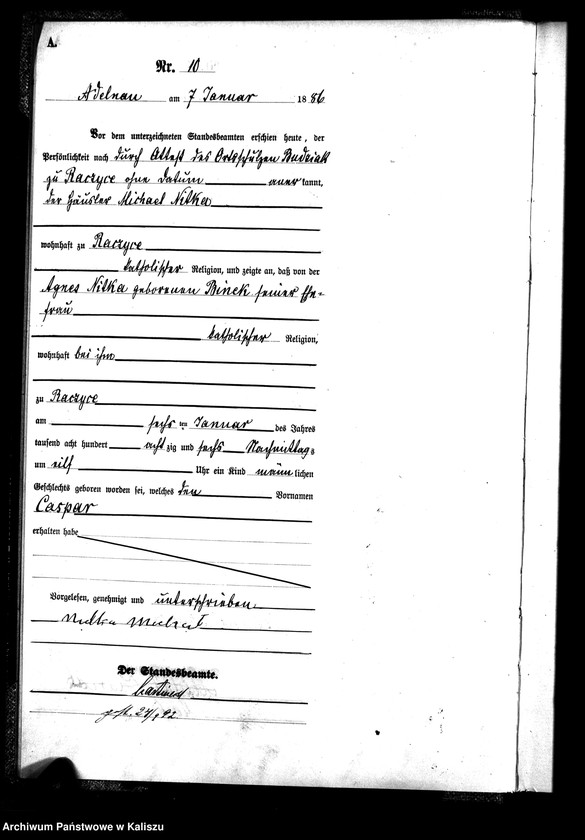 A.
Nr. 10
Adelnau am 7 Januar 1886
Vor dem unterzeichneten Standesbeamten erschien heute, der
Persönlichkeit nach durch Attest des Ortsschulzen
zu Raczyce ohne Datum anerkannt,
der Häusler Michael Nitka
wohnhaft zu Raczyce
katholischer Religion, und zeigte an, daß von der
Agnes Nitka geborenen Binek seiner Ehe-
frau
katholischer Religion,
wohnhaft bei ihm
zu Raczyce
am sechsten Januar des Jahres
tausend acht hundert achtzig und sechs Nachmittags
um eilf Uhr ein Kind männlichen
Geschlechts geboren worden sei, welches den Vornamen
Caspar
erhalten habe
Vorgelesen, genehmigt und unterschrieben.
Der Standesbeamte.
Archiwum Państwowe w Kaliszu